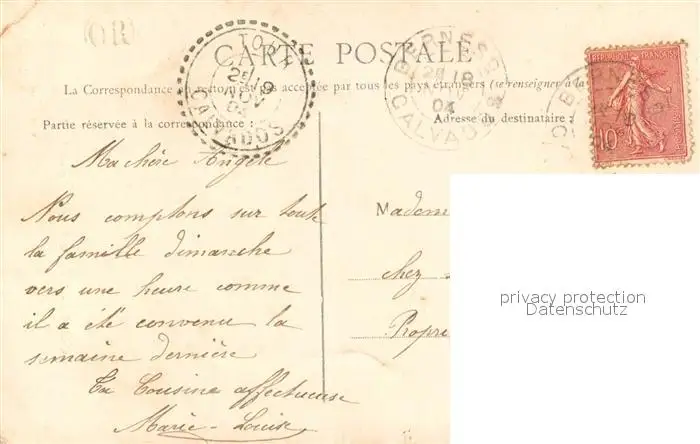 OR
CARTE POSTALE
La Correspondance au recto n'est pas acceptée par tous les pays étrangers (se renseigner à la
Partie réservée à la correspondance :
Adresse du destinataire :
TO
25 19
NOV
04
CALVADOS
BERNESQ
25 19
04
CALVADOS
REPUBLIQUE FRANÇAISE
POSTES
10c
Ma chère Angèle
Nous comptons sur toute
la famille dimanche
vers une heure comme
il a été convenu la
semaine dernière
Ta Cousine affectueuse
Marie-Louise
Madem
chez
Propri
privacy protection
Datenschutz